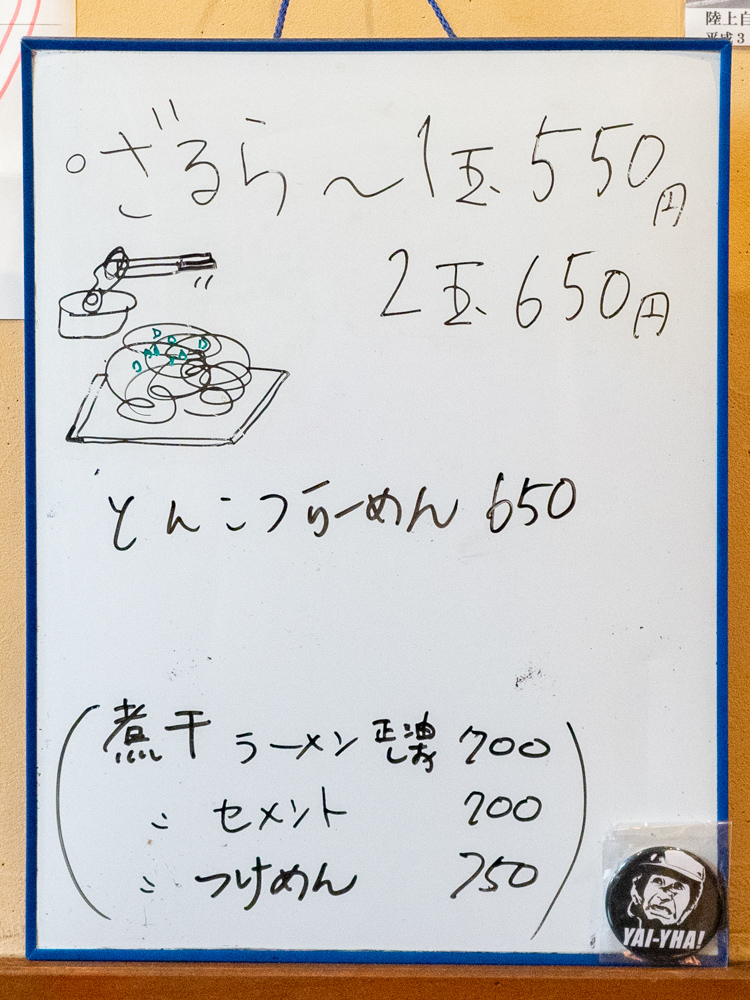 陸上自
平成3
。ざるら〜1玉550円
2玉650円
とんこつらーめん 650
(煮干ラーメン 正油 しお 700
〃 セメント 700
〃 つけめん 750)
YAI-YHA!